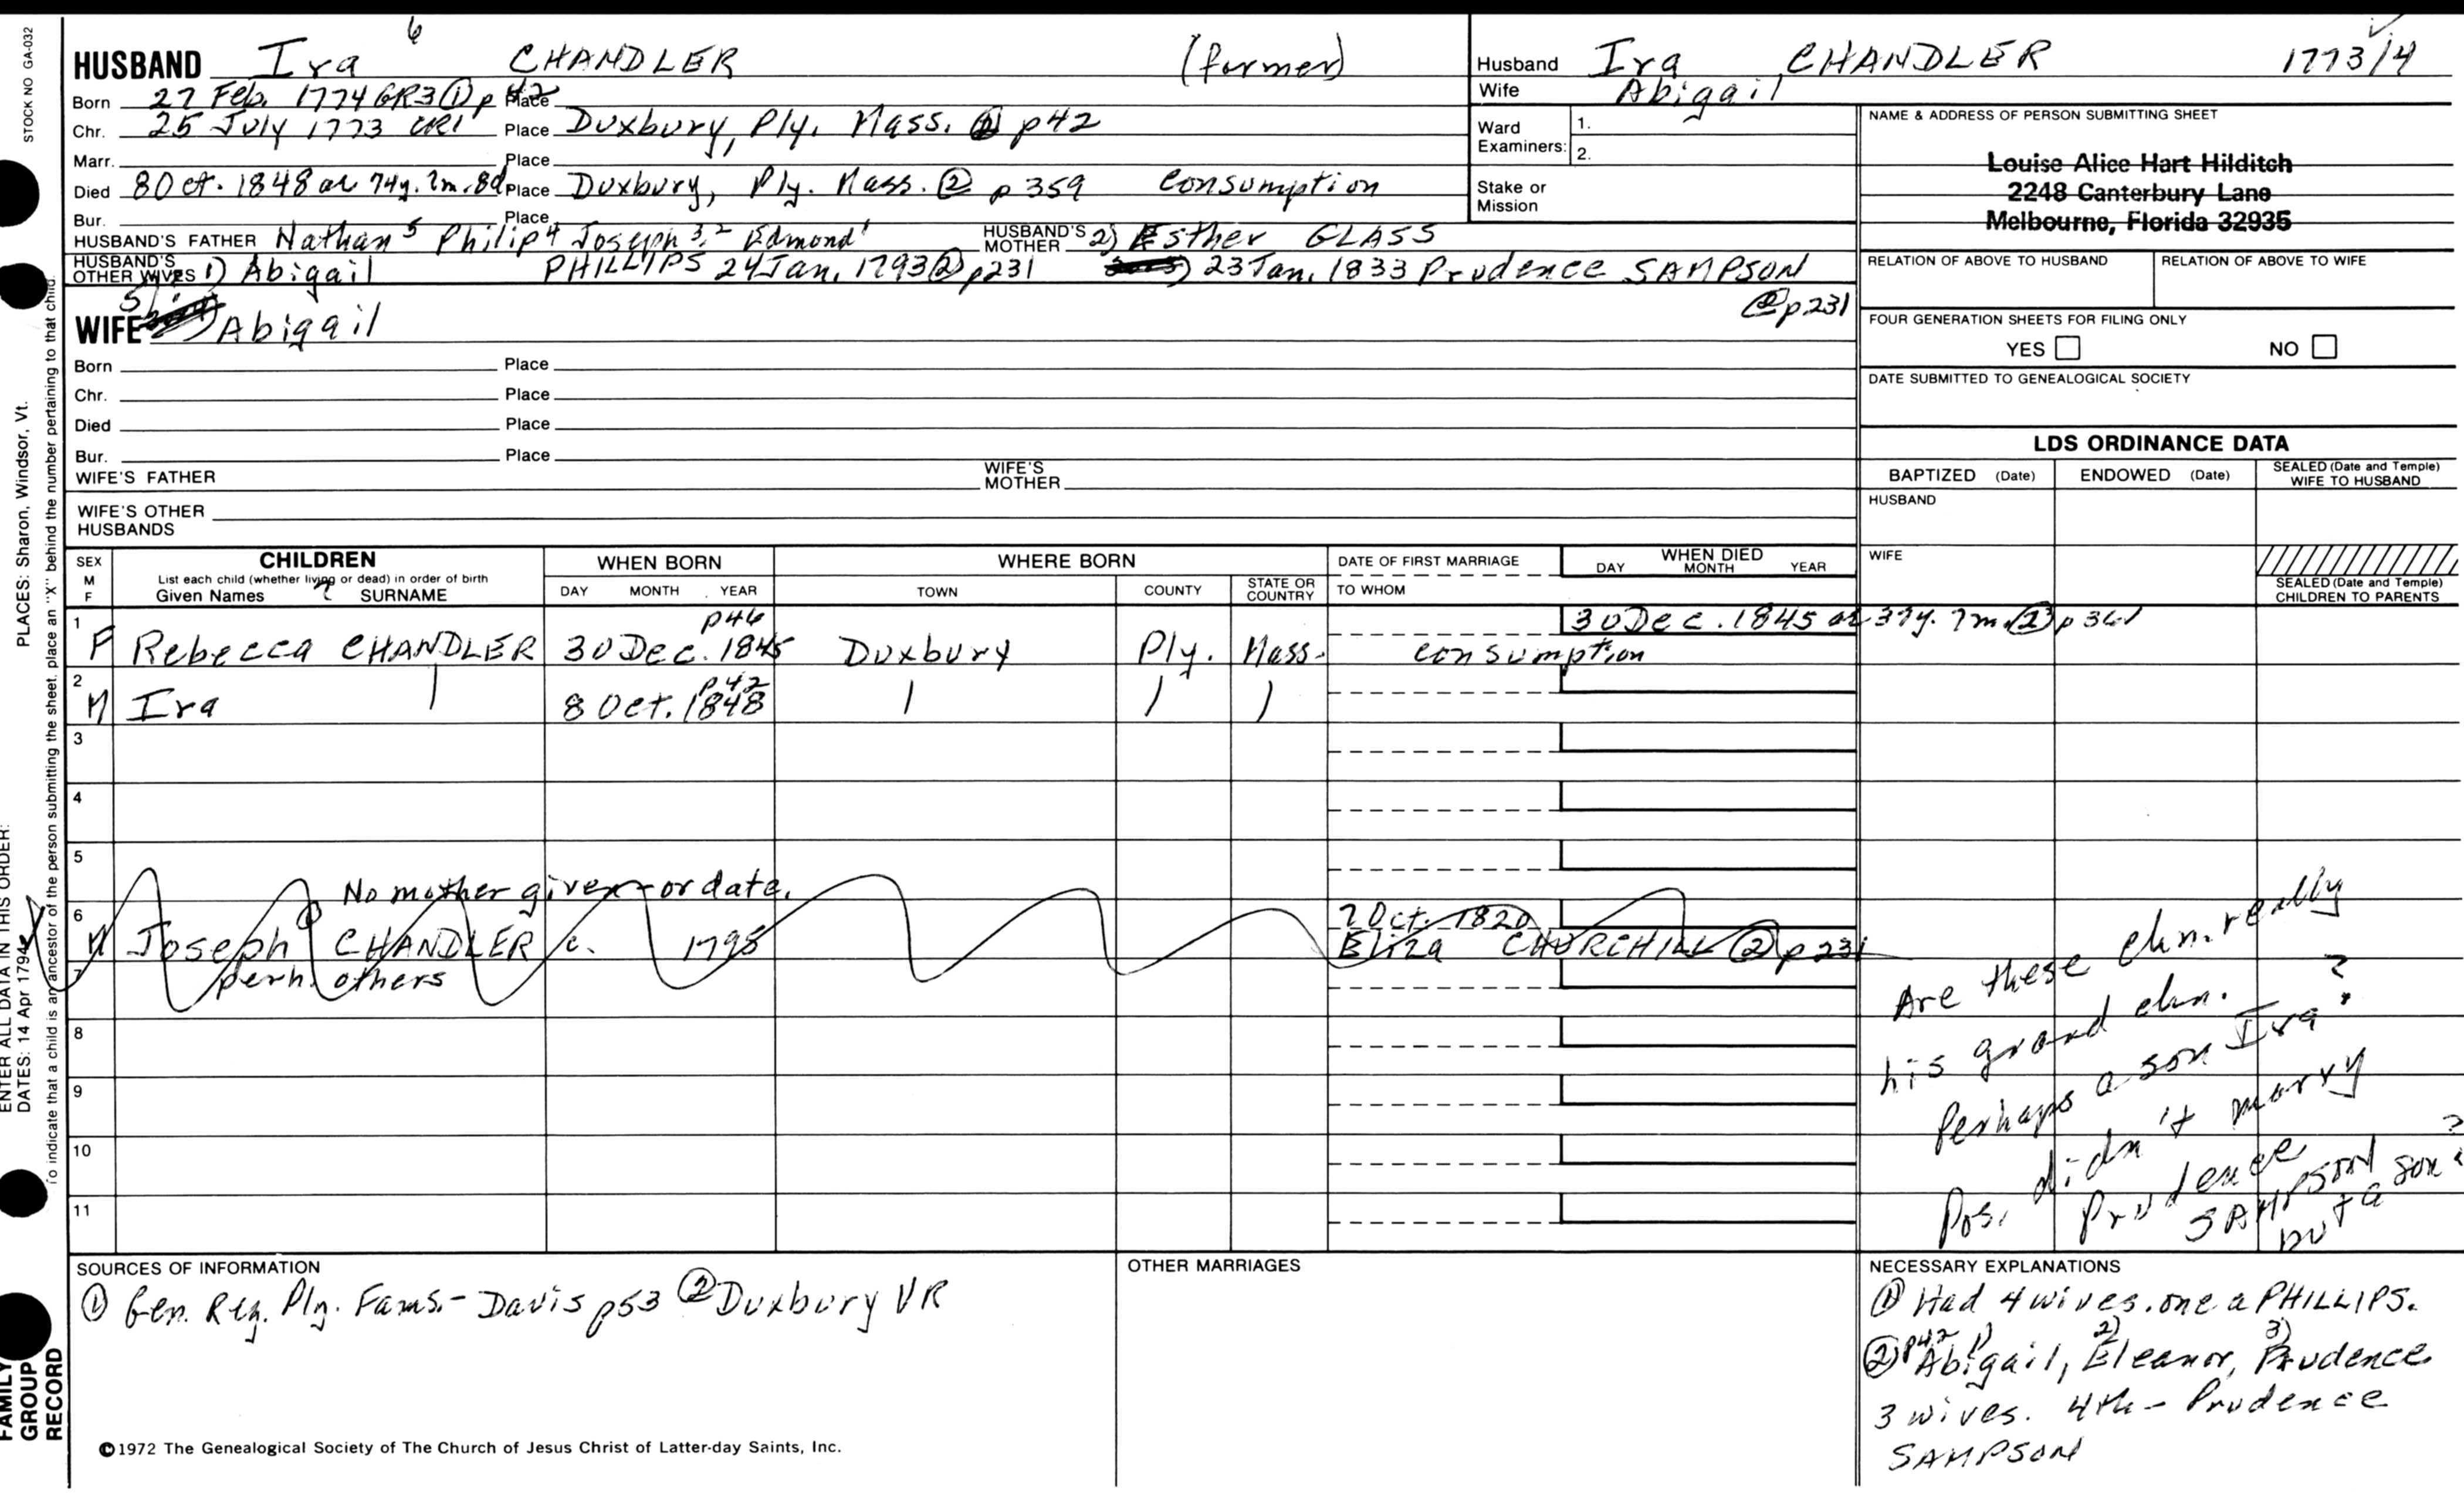 STOCK NO GA-032
HUSBAND Ira 6 CHANDLER (farmer)
Born 27 Feb. 1774 GR3 ① p 42 Place
Chr. 25 July 1773 CR1 Place Duxbury, Ply. Mass. ② p42
Marr. Place
Died 8 Oct. 1848 ae 74y. 7m. 8d Place Duxbury, Ply. Mass. ② p 359 Consumption
Bur. Place
HUSBAND'S FATHER Nathan 5 Philip 4 Joseph 3, 2 Edmond 1 HUSBAND'S MOTHER 2) Esther GLASS
HUSBAND'S OTHER WIVES 1) Abigail PHILLIPS 24 Jan. 1793 ② p231 23 Jan. 1833 Prudence SAMPSON
② p231
WIFE Abigail
Born Place
Chr. Place
Died Place
Bur. Place
WIFE'S FATHER WIFE'S MOTHER
WIFE'S OTHER HUSBANDS
Husband Ira CHANDLER 1773/4
Wife Abigail
Ward Examiners: 1.
2.
Stake or Mission
NAME & ADDRESS OF PERSON SUBMITTING SHEET
Louise Alice Hart Hilditch
2248 Canterbury Lane
Melbourne, Florida 32935
RELATION OF ABOVE TO HUSBAND RELATION OF ABOVE TO WIFE
FOUR GENERATION SHEETS FOR FILING ONLY
YES NO
DATE SUBMITTED TO GENEALOGICAL SOCIETY
LDS ORDINANCE DATA
BAPTIZED (Date) ENDOWED (Date) SEALED (Date and Temple) WIFE TO HUSBAND
HUSBAND
WIFE
SEALED (Date and Temple) CHILDREN TO PARENTS
SEX M F CHILDREN WHEN BORN WHERE BORN DATE OF FIRST MARRIAGE WHEN DIED
List each child (whether living or dead) in order of birth
Given Names 7 SURNAME DAY MONTH YEAR TOWN COUNTY STATE OR COUNTRY TO WHOM DAY MONTH YEAR
p46 30 Dec. 1845 ae 37y. 7m. ② p 361
1 F Rebecca CHANDLER 30 Dec. 1845 Duxbury Ply. Mass. consumption
p42
2 M Ira 8 Oct. 1848
3
4
5
No mother given or date.
6 2 Oct. 1820
M Joseph CHANDLER c. 1795 Eliza CHURCHILL ② p 231
7 perh. others
8
9
10
11
Are these chn. really
his grand chn. ?
Perhaps a son Ira?
Pos. didn't marry
Prudence
SAMPSON ?
but a son?
SOURCES OF INFORMATION
① Gen. Reg. Ply. Fams. - Davis p53 ② Duxbury VR
OTHER MARRIAGES
NECESSARY EXPLANATIONS
① Had 4 wives. one a PHILLIPS.
② p42 1) Abigail, 2) Eleanor, 3) Prudence
3 wives. 4th - Prudence
SAMPSON
©1972 The Genealogical Society of The Church of Jesus Christ of Latter-day Saints, Inc.
FAMILY GROUP RECORD
ENTER ALL DATA IN THIS ORDER:
DATES: 14 Apr 1794
PLACES: Sharon, Windsor, Vt.
To indicate that a child is an ancestor of the person submitting the sheet, place an "X" behind the number pertaining to that child.